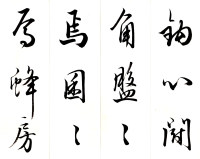 鈎心鬭
角盤〻
焉囷〻
焉蜂房